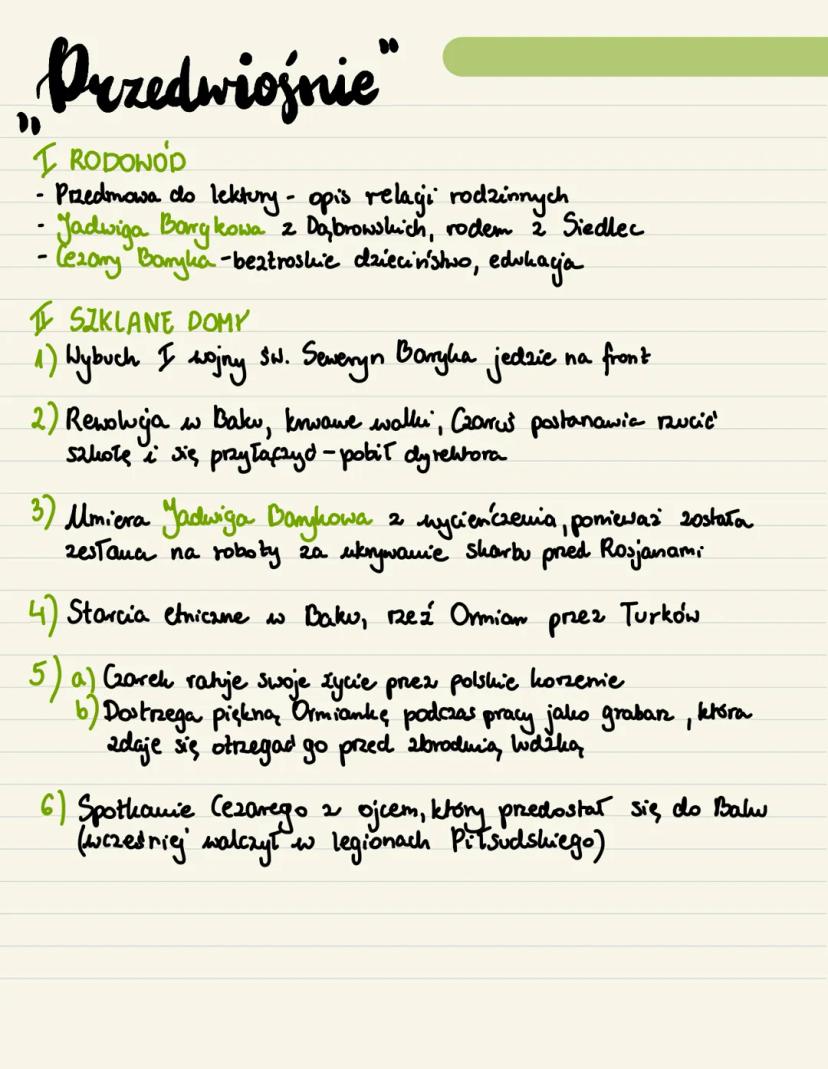 „Przedwiośnie”
I RODOWÓD
- Przedmowa do lektury - opis relacji rodzinnych
- Jadwiga Barykowa z Dąbrowskich, rodem z Siedlec
- Cezary Baryka - beztroskie dzieciństwo, edukacja
II SZKLANE DOMY
1) Wybuch I wojny św. Seweryn Baryka jedzie na front
2) Rewolucja w Baku, krwawe walki, Czaruś postanawia rzucić
szkołę i się przyłączyć - pobił dyrektora
3) Umiera Jadwiga Barykowa z wycieńczenia, ponieważ została
zesłana na roboty za ukrywanie skarbu przed Rosjanami
4) Starcia etniczne w Baku, rzeź Ormian przez Turków
5) a) Czarek ratuje swoje życie przez polskie korzenie
b) Dostrzega piękną Ormiankę podczas pracy jako grabarz, która
zdaje się ostrzegać go przed zbrodnią ludzką
6) Spotkanie Cezarego z ojcem, który przedostał się do Baku
(wcześniej walczył w legionach Piłsudskiego)